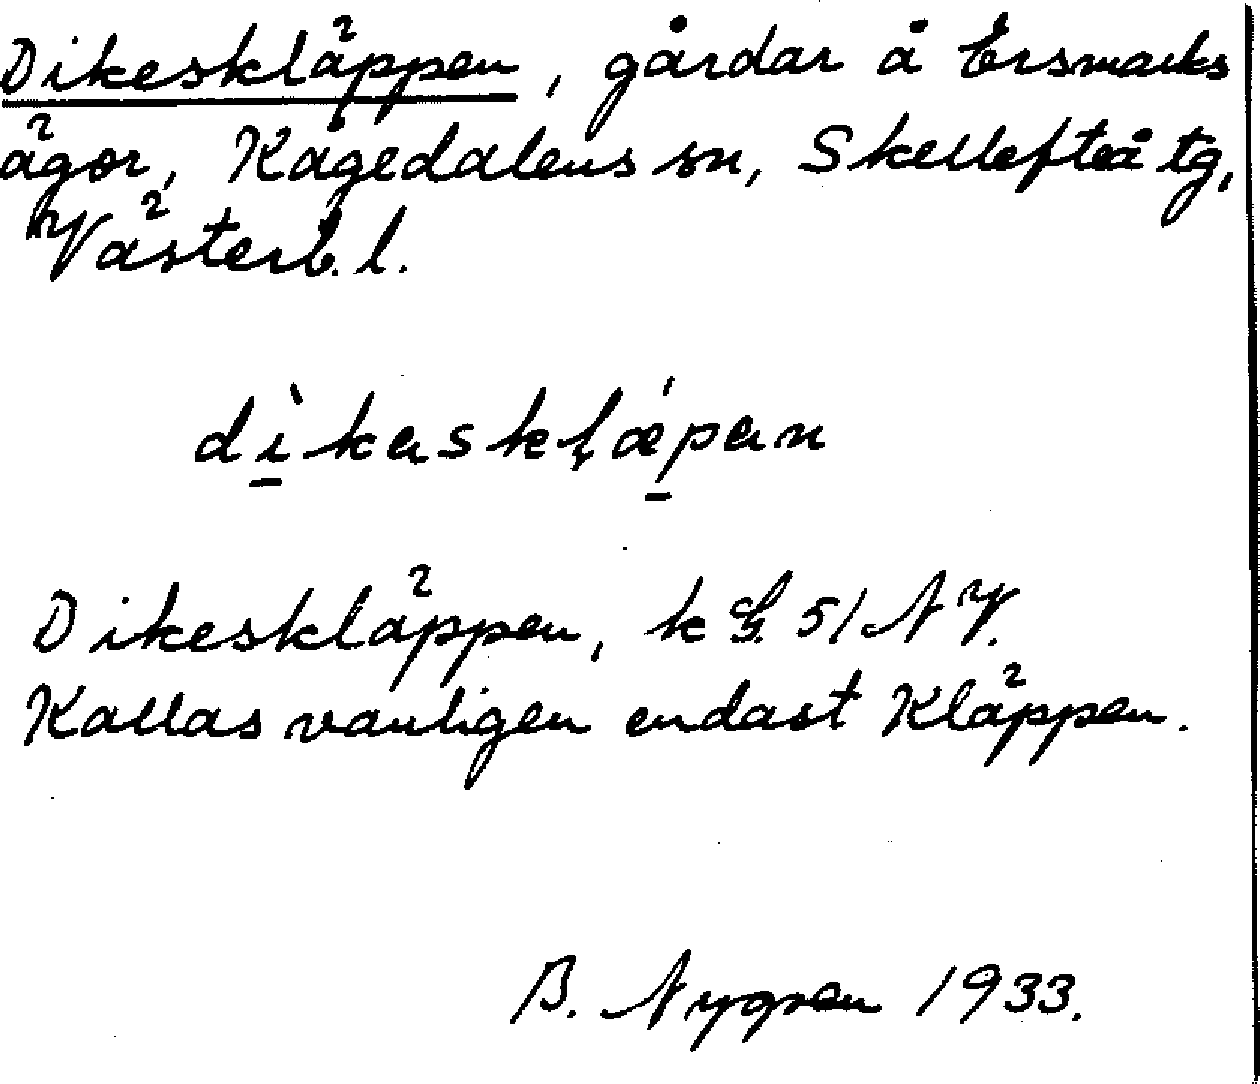 Dikeskläppen, gårdar å Ersmarks
ägor, Kågedalens sn, Skellefteå tg,
Västerb. l.
Dikeskläppen, k 51 NV.
Kallas vanligen endast Kläppen.
B. Nygren 1933.